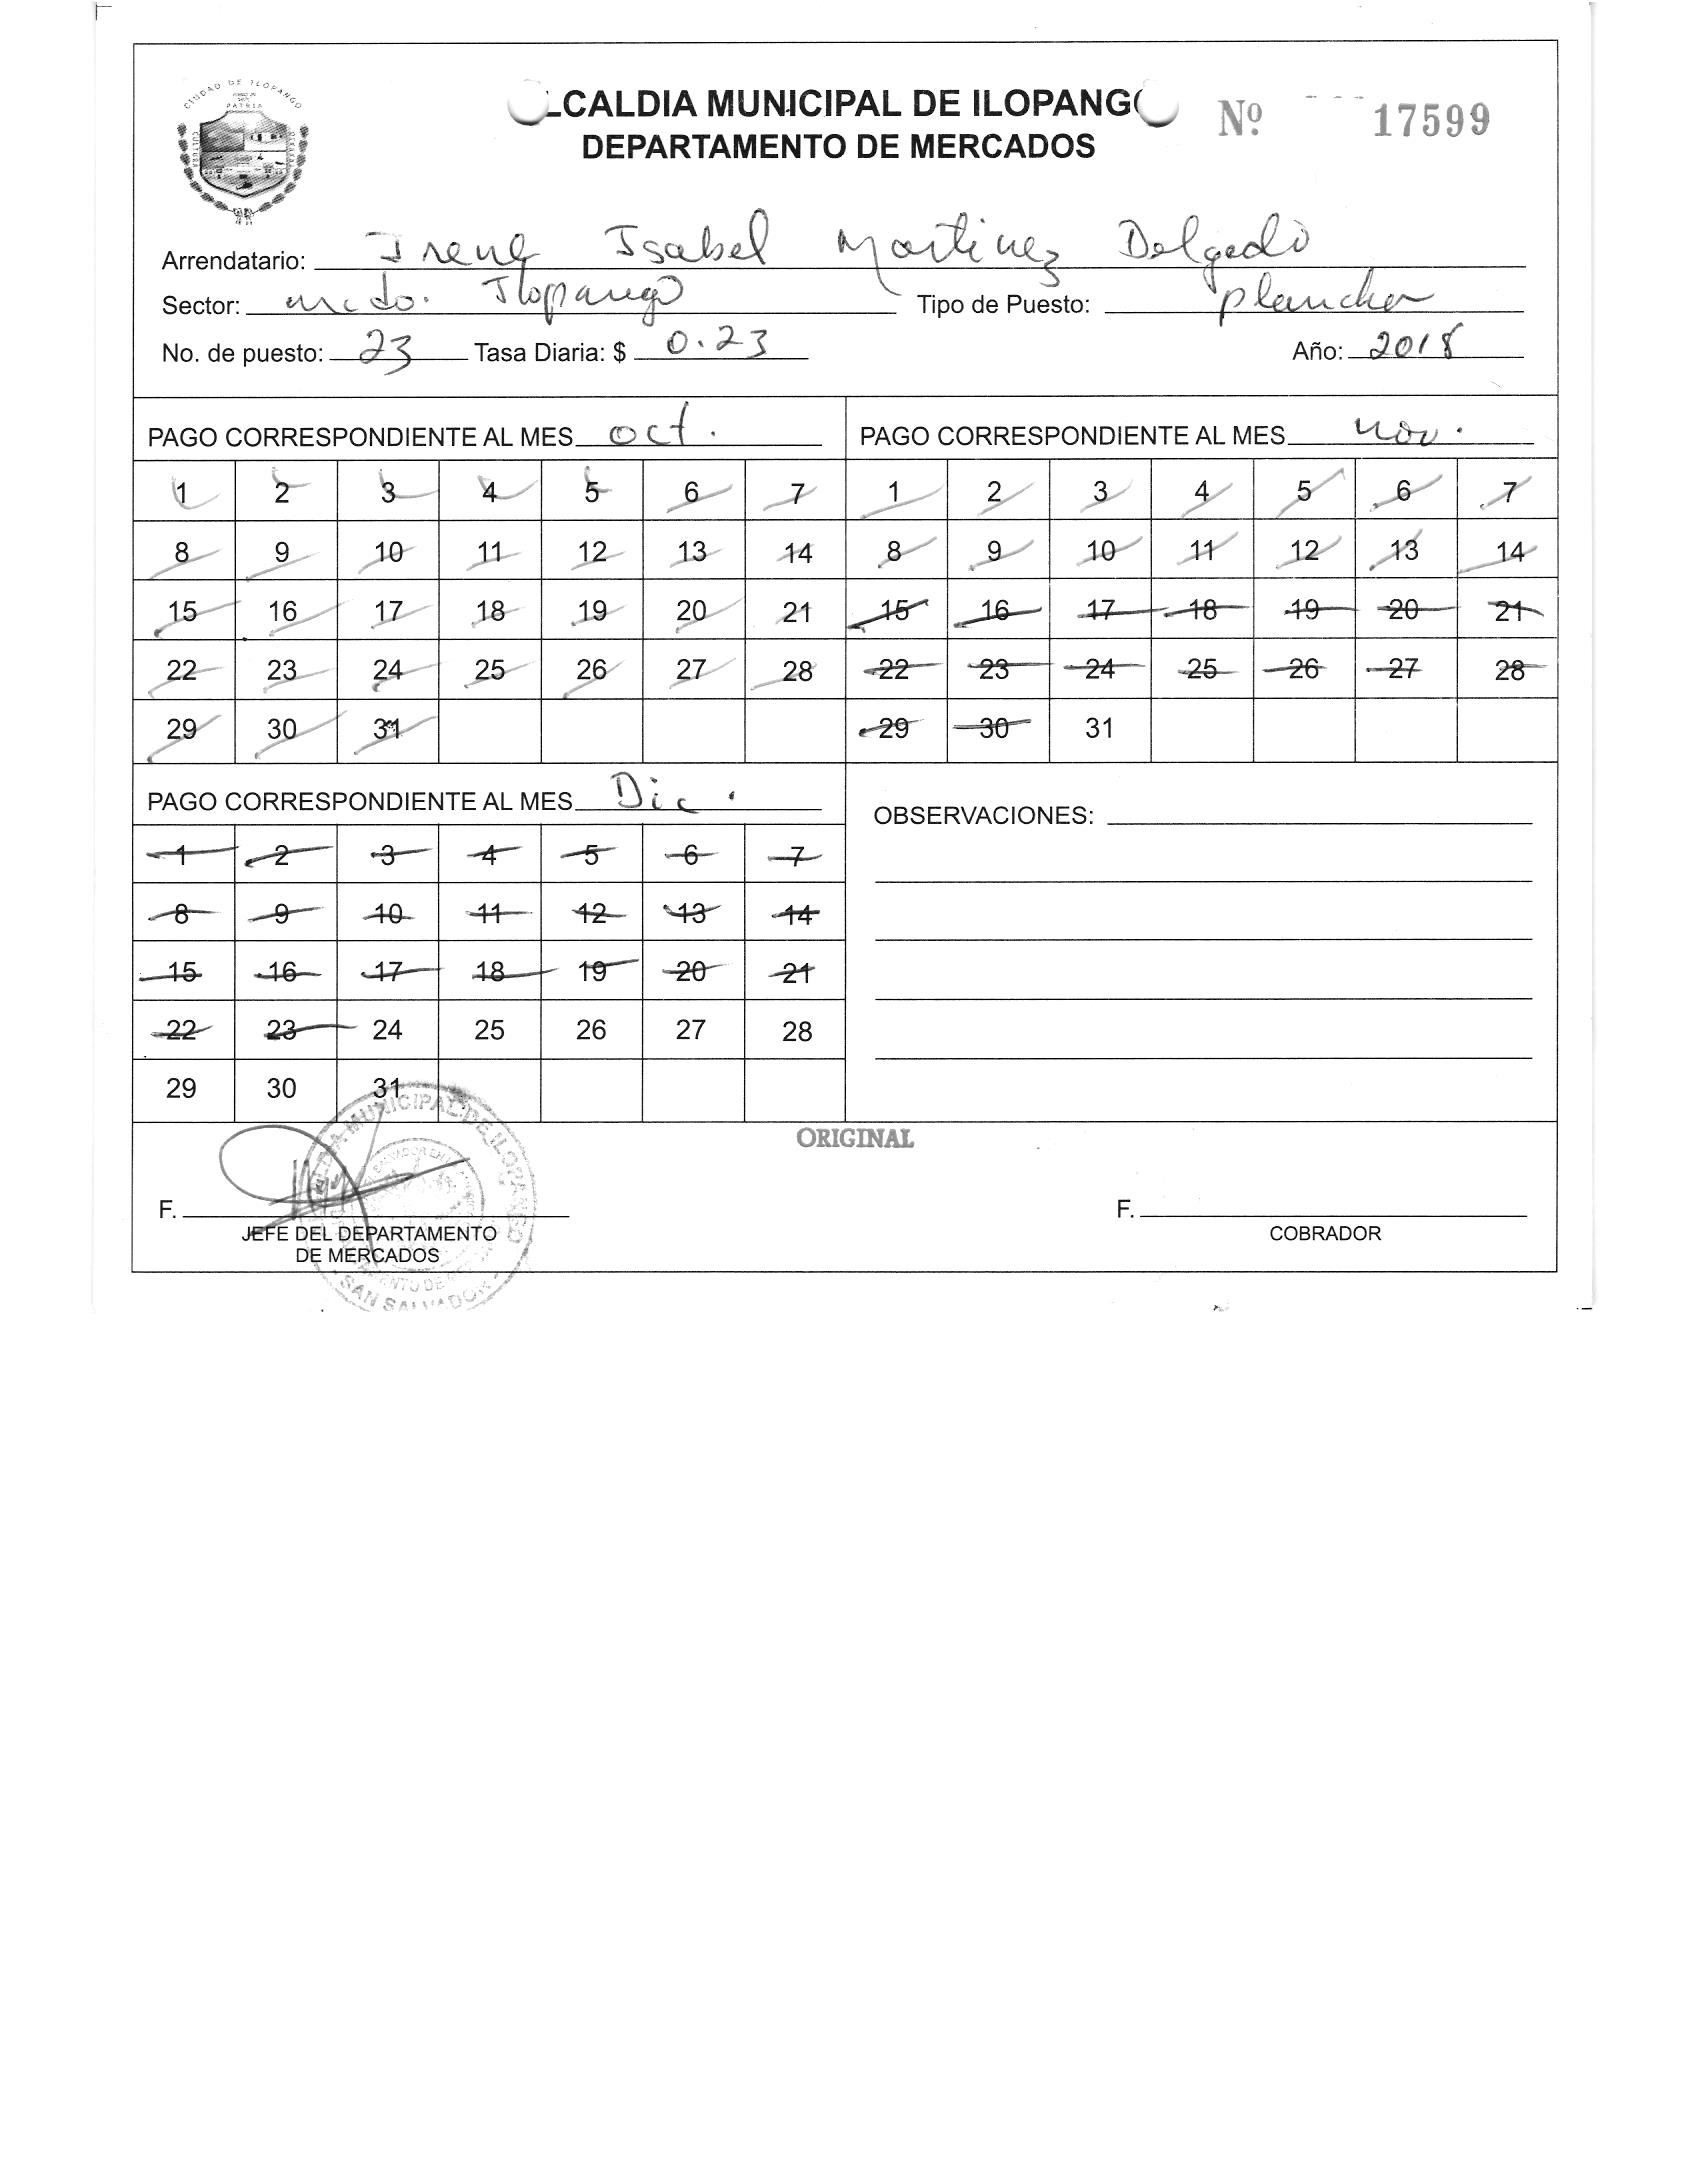 CIUDAD DE ILOPANGO
PATRIA
CULTURA
LCALDIA MUNICIPAL DE ILOPANGO
DEPARTAMENTO DE MERCADOS
Nº 17599
Arrendatario: Irene Isabel Martinez Delgado
Sector: mcdo. Ilopango Tipo de Puesto: plancha
No. de puesto: 23 Tasa Diaria: $ 0.23 Año: 2018
PAGO CORRESPONDIENTE AL MES oct. PAGO CORRESPONDIENTE AL MES nov.
1 2 3 4 5 6 7 1 2 3 4 5 6 7
8 9 10 11 12 13 14 8 9 10 11 12 13 14
15 16 17 18 19 20 21 15 16 17 18 19 20 21
22 23 24 25 26 27 28 22 23 24 25 26 27 28
29 30 31 29 30 31
PAGO CORRESPONDIENTE AL MES Dic.
OBSERVACIONES:
1 2 3 4 5 6 7
8 9 10 11 12 13 14
15 16 17 18 19 20 21
22 23 24 25 26 27 28
29 30 31
ORIGINAL
F. F.
JEFE DEL DEPARTAMENTO COBRADOR
DE MERCADOS
MUNICIPAL DE ILOPANGO
SAN SALVADOR